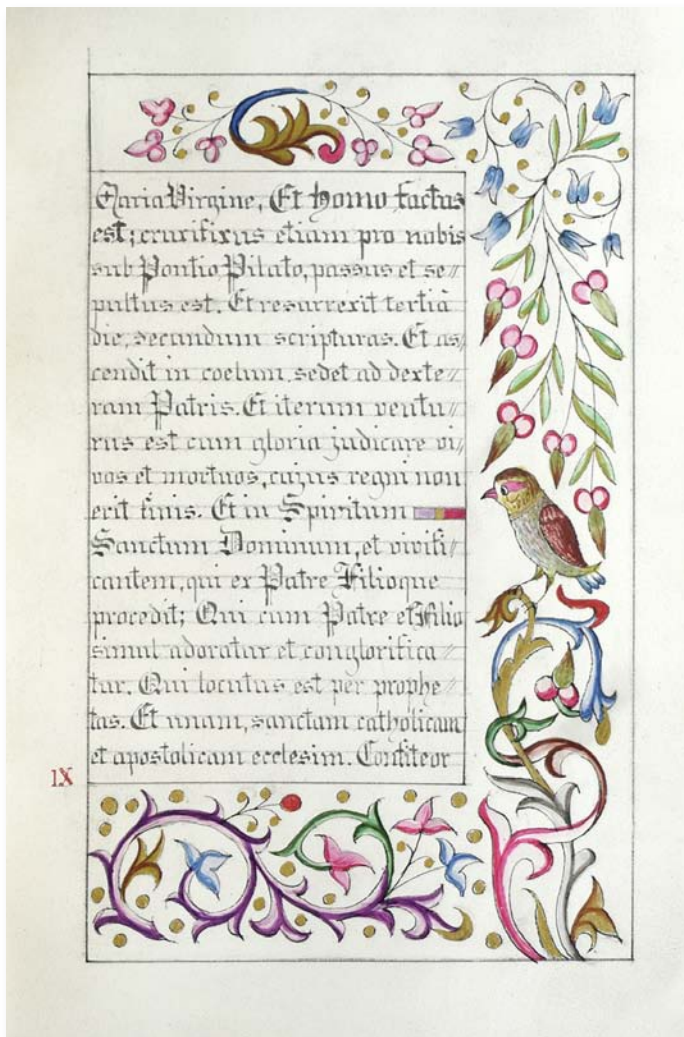 Maria Virgine, Et homo factus
est; crucifixus etiam pro nobis
sub Pontio Pilato, passus et se//
pultus est. Et resurrexit tertiâ
die, secundum scripturas. Et as//
cendit in coelum, sedet ad dexte//
ram Patris. Et iterum ventu//
rus est cum gloria judicare vi//
vos et mortuos, cujus regni non
erit finis. Et in Spiritum
Sanctum Dominum, et vivifi//
cantem, qui ex Patre Filioque
procedit; Qui cum Patre et Filio
simul adoratur et conglorifica
tur. Qui locutus est per prophe//
tas. Et unam, sanctam catholicam
et apostolicam ecclesim. Confiteor
IX